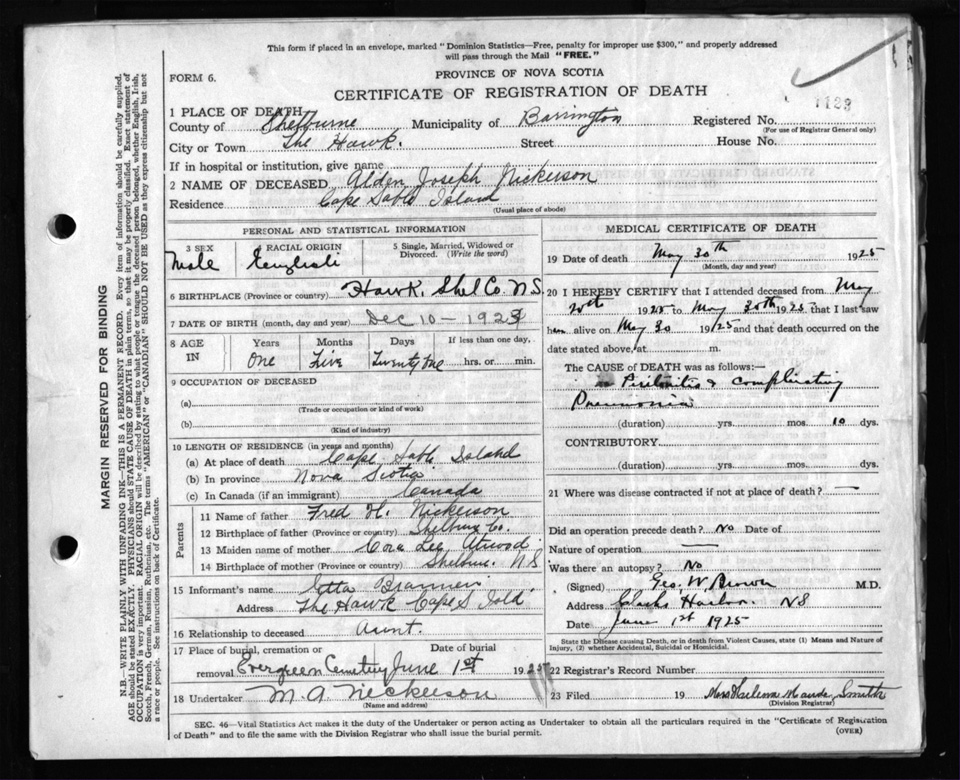 This form if placed in an envelope, marked "Dominion Statistics—Free, penalty for improper use $300," and properly addressed
will pass through the Mail "FREE."
FORM 6.
PROVINCE OF NOVA SCOTIA
CERTIFICATE OF REGISTRATION OF DEATH
1129
1 PLACE OF DEATH
County of Shelburne Municipality of Barrington Registered No.
(For use of Registrar General only)
City or Town The Hawk. Street House No.
If in hospital or institution, give name
2 NAME OF DECEASED Alden Joseph Nickerson
Residence Cape Sable Island
(Usual place of abode)
PERSONAL AND STATISTICAL INFORMATION
3 SEX Male
4 RACIAL ORIGIN English
5 Single, Married, Widowed or Divorced. (Write the word)
6 BIRTHPLACE (Province or country) Hawk, Shel Co. N.S.
7 DATE OF BIRTH (month, day and year) Dec 10 - 1923
8 AGE IN
Years One
Months Five
Days Twenty One
If less than one day, hrs. or min.
9 OCCUPATION OF DECEASED
(a)
(Trade or occupation or kind of work)
(b)
(Kind of industry)
10 LENGTH OF RESIDENCE (in years and months)
(a) At place of death Cape Sable Island
(b) In province Nova Scotia
(c) In Canada (if an immigrant) Canada
Parents
11 Name of father Fred H. Nickerson
12 Birthplace of father (Province or country) Shelburne Co.
13 Maiden name of mother Cora Lee Atwood
14 Birthplace of mother (Province or country) Shelbune. N S
15 Informant's name Etta Brannen
Address The Hawk Cape S Isld.
16 Relationship to deceased Aunt.
17 Place of burial, cremation or removal Evergreen Cemetery
Date of burial June 1st 1925
18 Undertaker M. A. Nickerson
(Name and address)
MEDICAL CERTIFICATE OF DEATH
19 Date of death May 30th 1925
(Month, day and year)
20 I HEREBY CERTIFY that I attended deceased from May
20th 1925 to May 30th 1925 that I last saw
him alive on May 30 1925 and that death occurred on the
date stated above, at m.
The CAUSE OF DEATH was as follows:—
Peritonitis & complicating
Pneumonia
(duration) yrs. mos. 10 dys.
CONTRIBUTORY
(duration) yrs. mos. dys.
21 Where was disease contracted if not at place of death? —
Did an operation precede death? No Date of
Nature of operation —
Was there an autopsy? No
(Signed) Geo. W. Brown M.D.
Address Clarks Harbor. NS
Date June 1st 1925
State the Disease causing Death, or in death from Violent Causes, state (1) Means and Nature of
Injury, (2) whether Accidental, Suicidal or Homicidal.
22 Registrar's Record Number
23 Filed 19 Maude Smith
(Division Registrar)
SEC. 46—Vital Statistics Act makes it the duty of the Undertaker or person acting as Undertaker to obtain all the particulars required in the "Certificate of Registration
of Death" and to file the same with the Division Registrar who shall issue the burial permit.
(OVER)
MARGIN RESERVED FOR BINDING
N.B.—WRITE PLAINLY WITH UNFADING INK—THIS IS A PERMANENT RECORD. Every item of information should be carefully supplied.
AGE should be stated EXACTLY. PHYSICIANS should STATE CAUSE OF DEATH in plain terms, so that it may be properly classified. Exact statement of
OCCUPATION is very important. RACIAL ORIGIN will be described by stating to what people or tongue the deceased person belonged, whether English, Irish,
Scotch, French, German, Russian, Ruthenian, etc. The terms "AMERICAN" or "CANADIAN" SHOULD NOT BE USED as they express citizenship but not
a race or people. See instructions on back of Certificate.